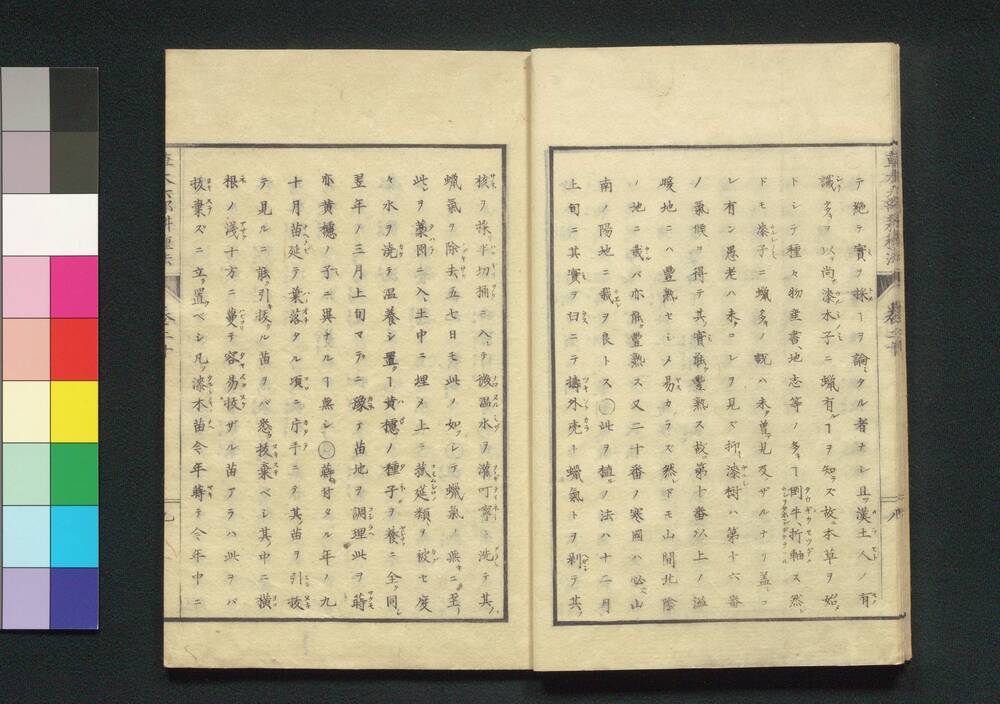 テ絶テ實ヲ採ーヲ論シタル者ナシ且ツ漢土人ノ有
識多クヲ以尚漆木子ニ蠟有ルーヲ知ラズ故ニ本草ヲ始メ
トシテ種々物産書、地志等ノ多キー倒牛、折軸ス然レ
ドモ漆子ニ蠟多キノ説ハ未ダ曽テ見及ザルナリ蓋シコ
レ有ン愚老ハ未ダコレヲ見ズ抑漆樹ハ第十六番
ノ氣候ヨリ得テ其實能豐熟ス故ニ第十番以上ノ温
暖地ニハ豐熟セシメ易カラズ然レドモ山間北陰
ノ地ニ栽バ亦能豐熟ス又二十番ノ寒國ハ必ズ山
南ノ陽地ニ栽ヲ良トス○此ヲ植ルノ法ハ十二月
上旬ニ其實ヲ臼ニテ擣外売ト蠟氣トヲ剥テ其
核ヲ採半切桶ニ入レテ微温水ヲ灌叮寧ニ洗テ其
蠟氣ヲ除去五七日モ此ノ如クシテ蠟氣ノ無ニ至
此ヲ藁囤ニ入レ土中ニ埋メ上ニ菰筵類ヲ被セ度
々水ヲ澆テ温養シ置ー黄櫨ノ種子ヲ養ニ全ク同シ
翌年ノ三月上旬マデニ豫テ苗地ヲ調理此ヲ蒔
亦黄櫨ノ子ニ異ナルー無シ○蒔付タル年ノ九
十月苗延テ葉落タル頃ニ片手ニテ其苗ヲ引抜
テ見ルニ能引抜ル苗ヲバ悉抜棄ベシ其中ニ横
根ノ淺十方ニ蔓テ容易抜ザル苗アラハ此ヲバ
抜棄ズニ立置ベシ凡ソ漆木苗今年蒔テ今年中ニ
草木六部耕種法
卷二十
九